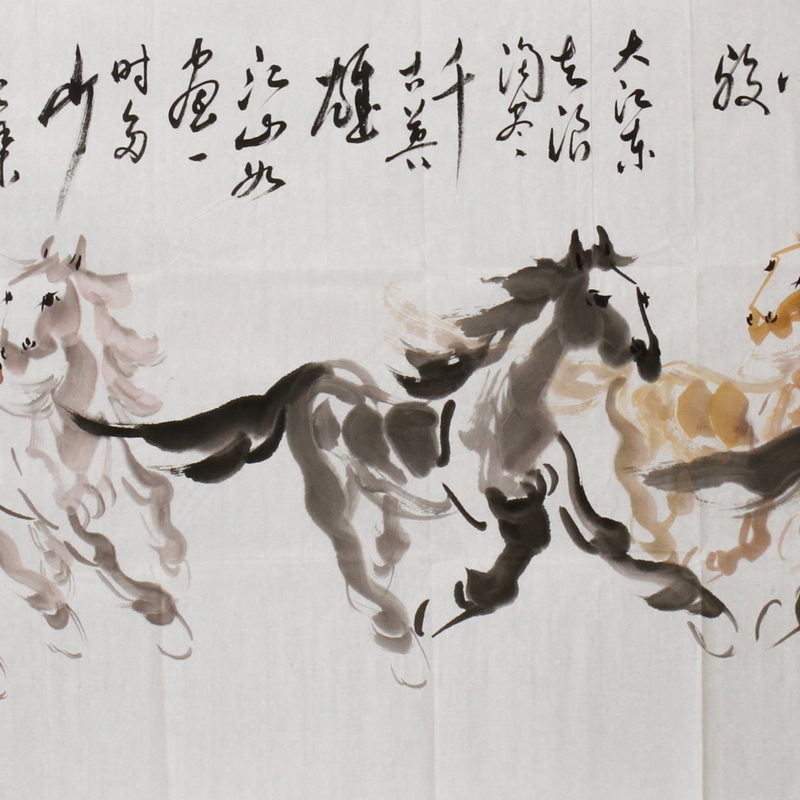 大江东
去浪
淘尽
千
古英
雄
江山如
画一
时多
少